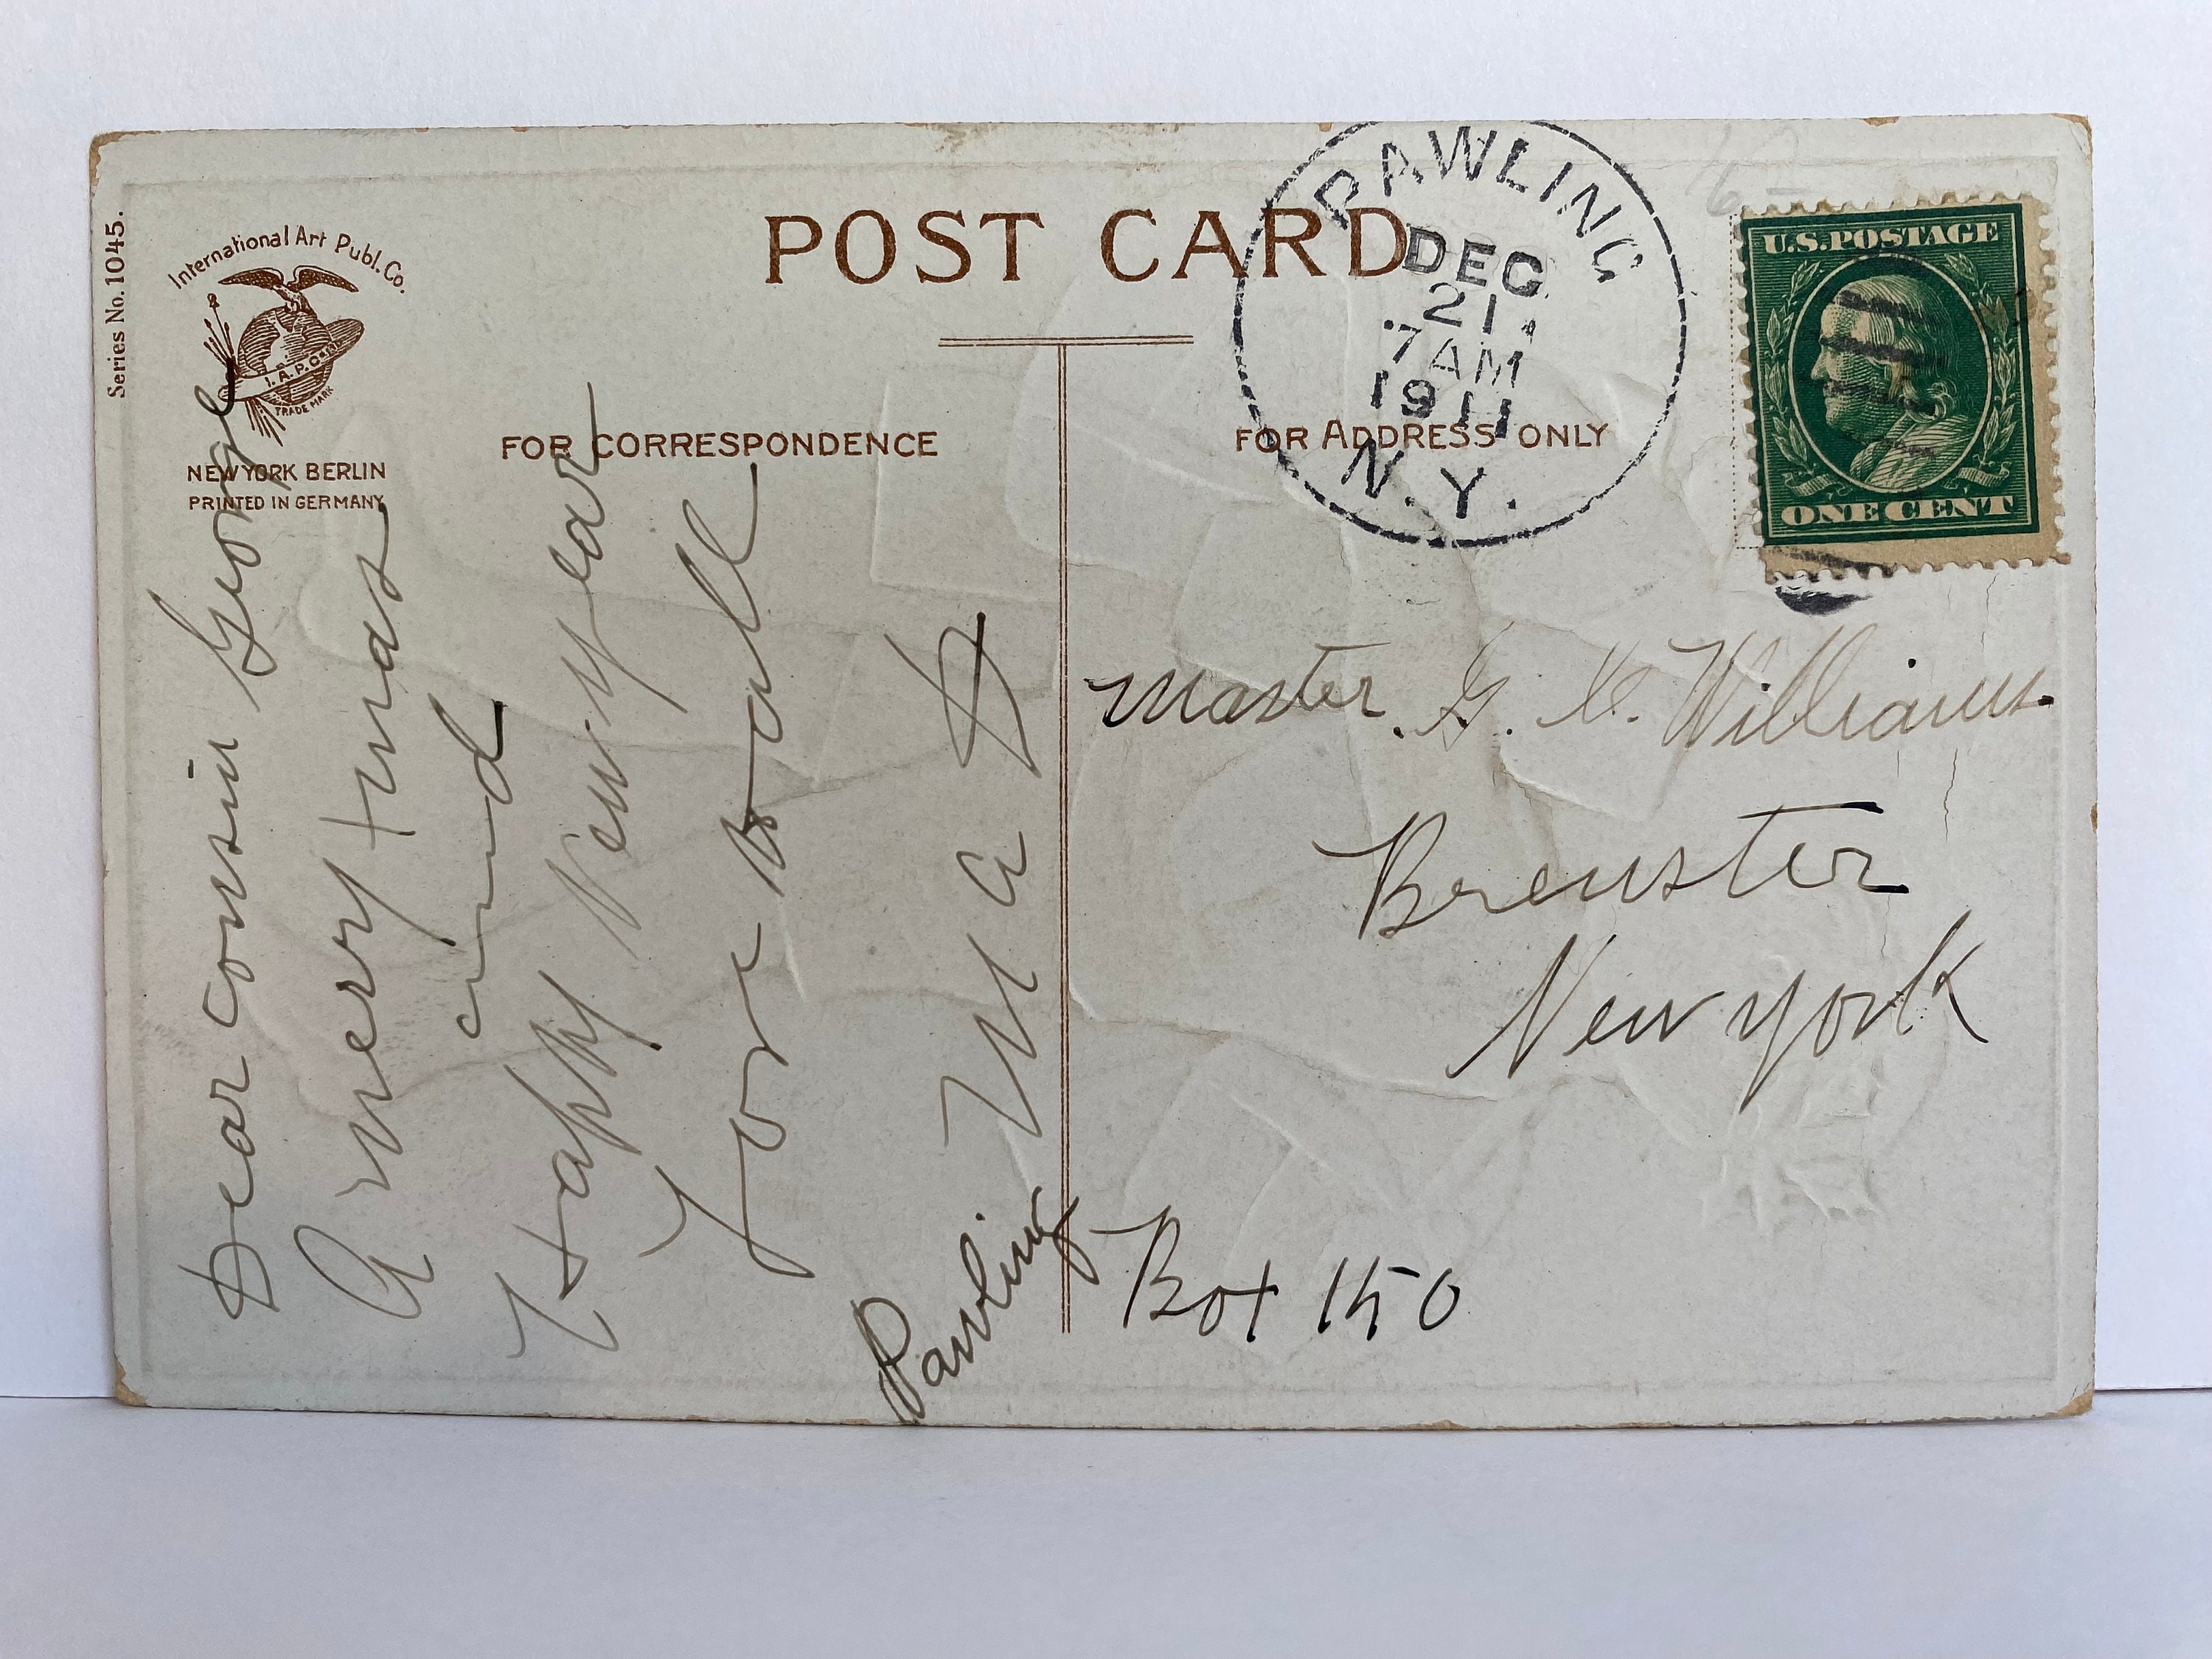 Series No. 1045.
International Art Publ. Co.
I. A. P. Co.
TRADE MARK
NEW YORK BERLIN
PRINTED IN GERMANY
POST CARD
FOR CORRESPONDENCE
FOR ADDRESS ONLY
PAWLING
DEC
21
7 AM
1911
N.Y.
U.S. POSTAGE
ONE CENT
Dear cousin George
A merry Xmas
and
Happy New year
for
Pawling
Master. G. Williams.
Brewster
New york
Box 150